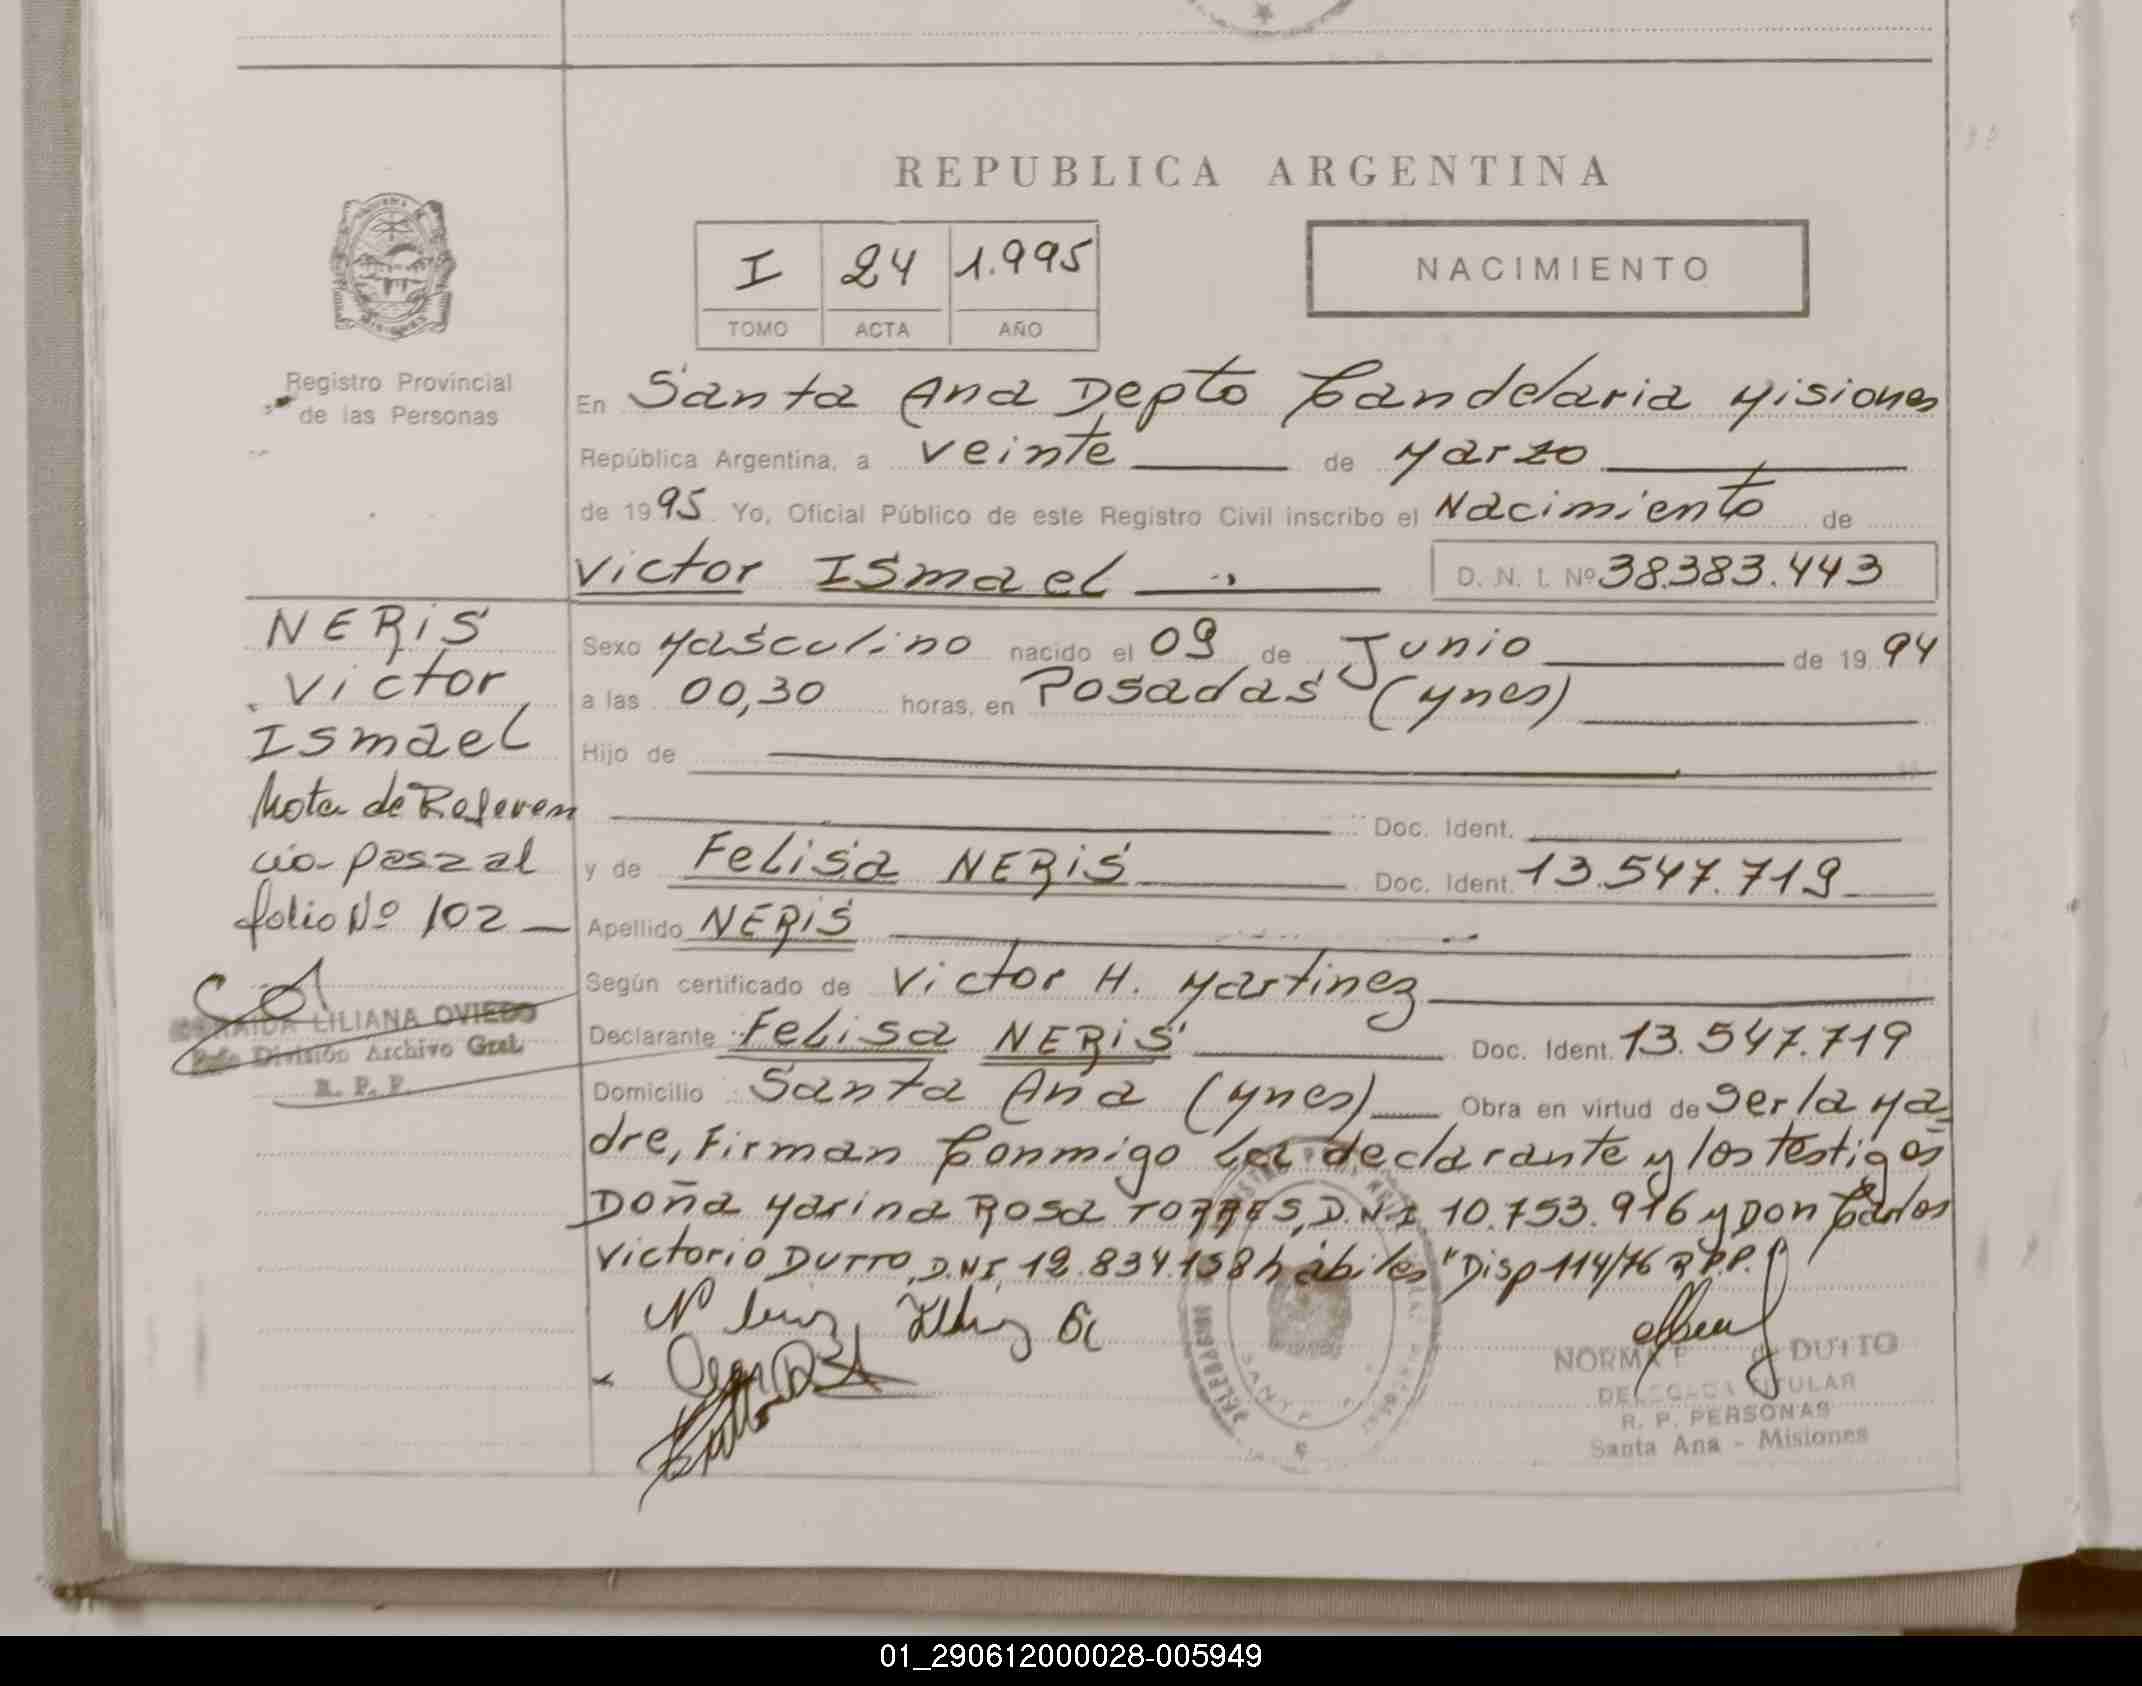 REPUBLICA ARGENTINA
I 24 1.995
TOMO ACTA AÑO
NACIMIENTO
Registro Provincial
de las Personas
En Santa Ana Depto Candelaria Misiones
República Argentina, a veinte de Marzo
de 1995 Yo, Oficial Público de este Registro Civil inscribo el Nacimiento de
Victor Ismael D. N. I. Nº 38.383.443
NERIS
Victor
Ismael
Nota de Referen
cia paszal
folio Nº 102
LILIANA OVIEDO
División Archivo Gral.
R. P. P.
Sexo Masculino nacido el 09 de Junio de 1994
a las 00,30 horas, en Posadas (Mnes)
Hijo de
Doc. Ident.
y de Felisa NERIS Doc. Ident. 13.547.719
Apellido NERIS
Según certificado de Victor H. Martinez
Declarante Felisa NERIS Doc. Ident. 13.547.719
Domicilio Santa Ana (Mnes) Obra en virtud de Ser la Ma
dre, Firman Conmigo la declarante y los testigos
Doña Marina Rosa TORRES, D.N.I. 10.753.916 y Don Carlos
Victorio DUTTO, D.N.I. 12.834.158 hábiles "Disp 114/76 R.P.P."
NORMA DUTTO
DELEGADA TITULAR
R. P. PERSONAS
Santa Ana - Misiones
01_290612000028-005949